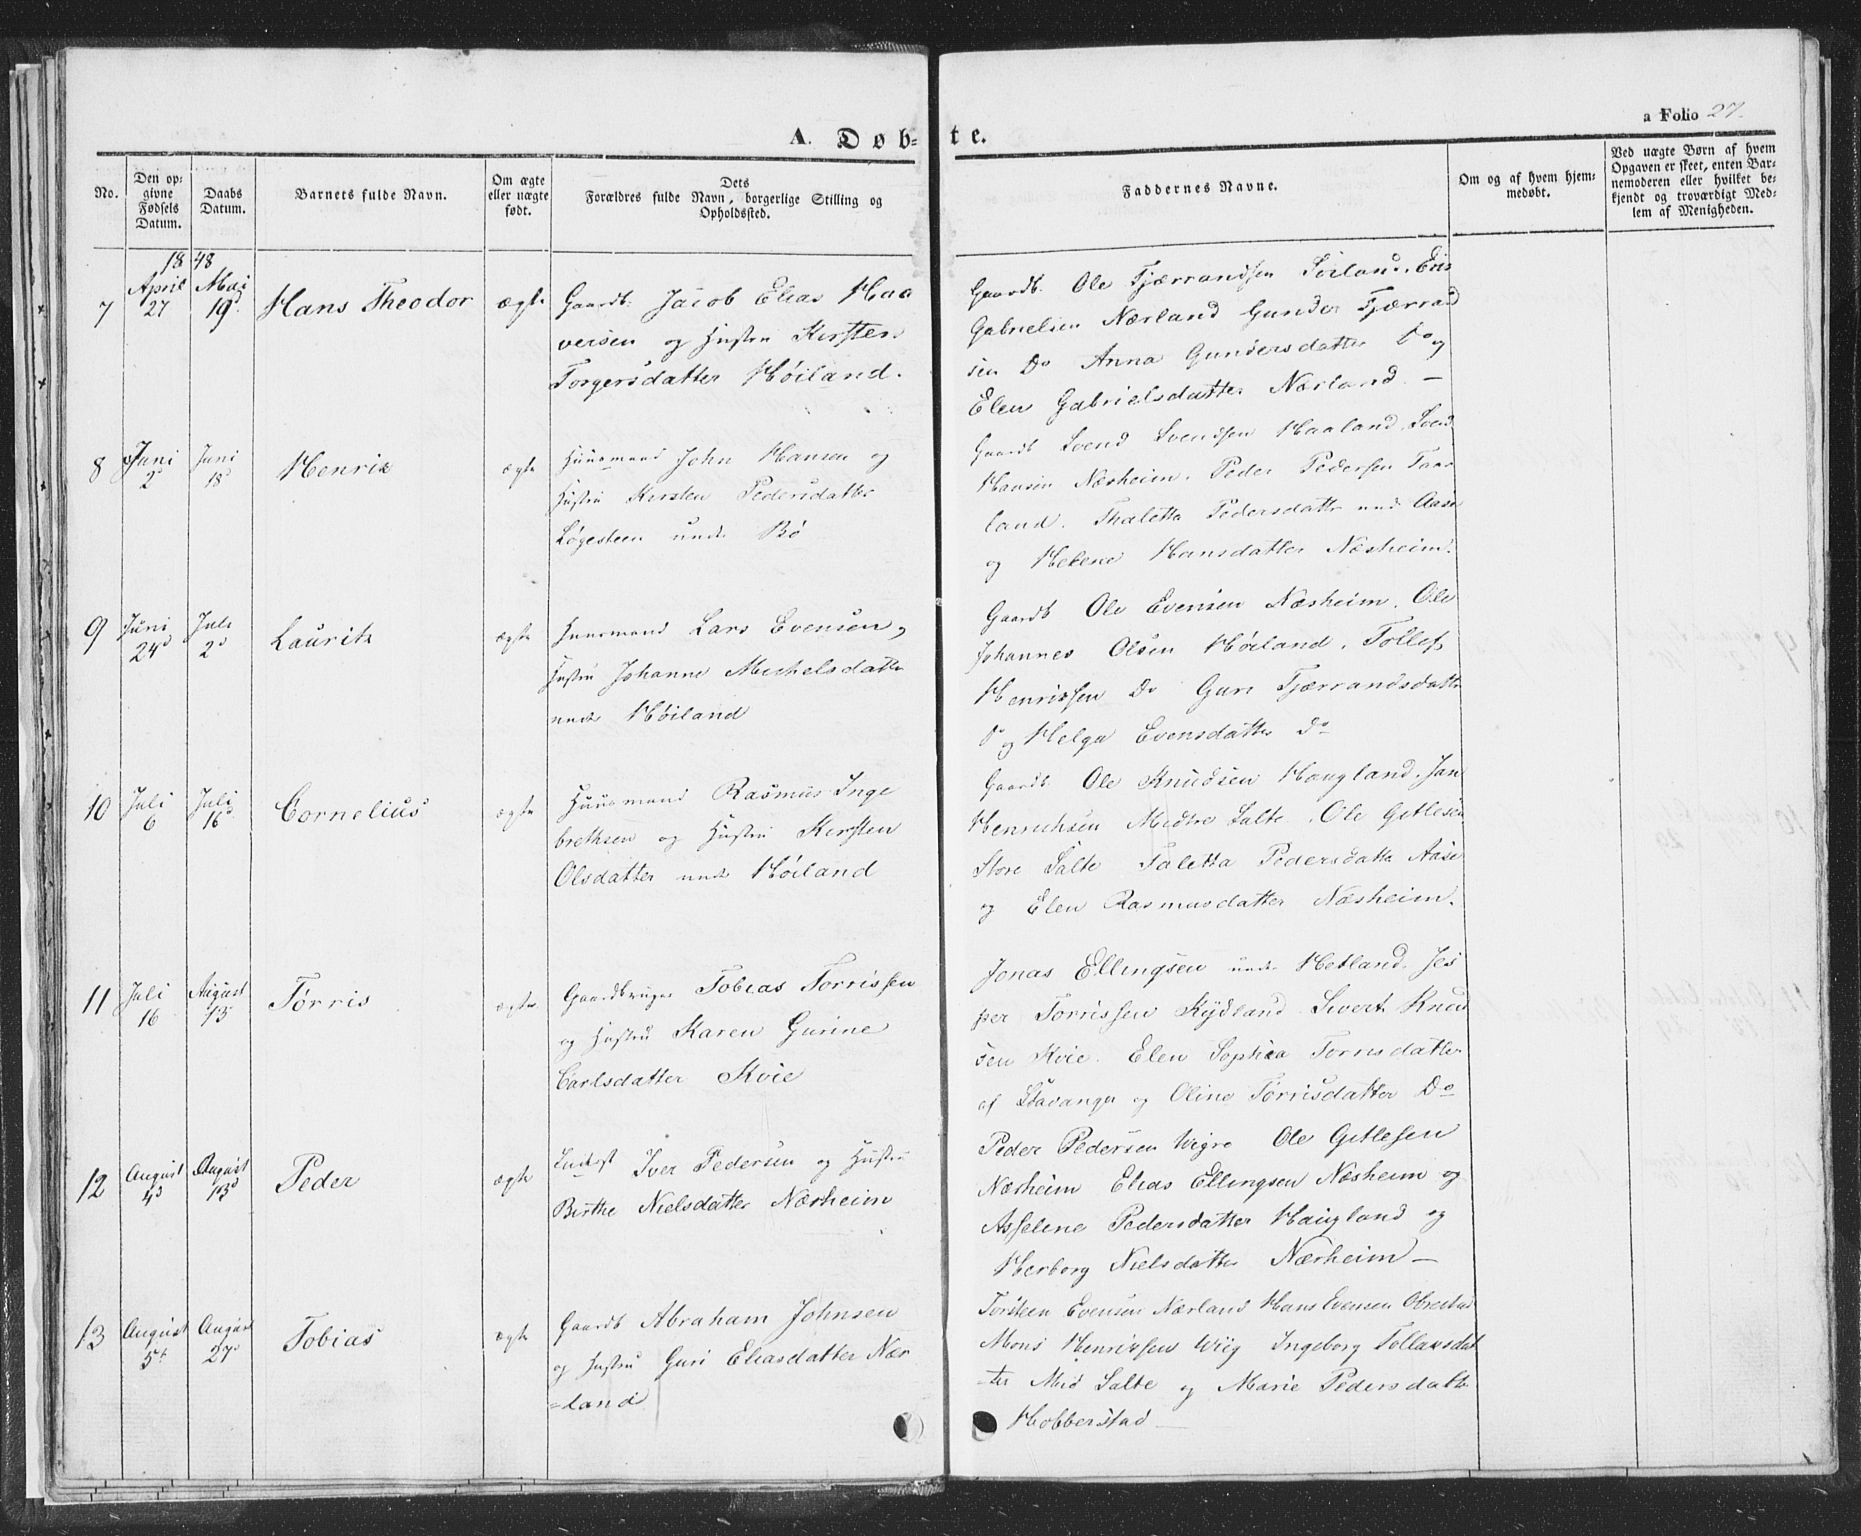 a Folio 27.
A. Døb-
te.
No.
Den op-
givne
Fødsels
Datum.
Daabs
Datum.
Barnets fulde Navn.
Om ægte
eller uægte
født.
Dets
Forældres fulde Navn, borgerlige Stilling og
Opholdssted.
Faddernes Navne.
Om og af hvem hjem-
medøbt.
Ved uægte Børn af hvem
Opgaven er skeet, enten Bar-
nemoderen eller hvilket be-
kjendt og troværdigt Med-
lem af Menigheden.
1848
7
April
27
Mai
19
Hans Theodor
ægte
Gaardb. Jacob Elias Haa
versen og Hustru Kirsten
Torgersdatter Høiland.
Gaardb. Ole Tjærrandsen
Gabrielsen Nærland Gunder Tjærrand
sen Do Anna Gundersdatter Do og
Elen Gabrielsdatter Nærland. —
8
Juni
2
Juni
18
Henrik
ægte
Huusmand John Hansen og
Hustru Kirsten Pedersdatter
Løgesteen under Bø
Gaardb Svend Svendsen Haaland. Svend
Hansen Næsheim. Peder Pedersen Taar
land. Thaletta Pedersdatter und. Aase
og Helene Hansdatter Næsheim.
9
Juni
24
Juli
2
Lauritz
ægte
Huusmand Lars Evensen og
Hustru Johanne Michelsdatter
under Høiland
Gaardb Ole Evensen Næsheim. Ole
Johannes Olsen Høiland. Tollef
Henrikssen Do Guri Tjærrandsdatter
Do og Helga Evensdatter Do
10
Juli
6
Juli
16
Cornelius
ægte
Huusmand Rasmus Inge
brethsen og Hustru Kirsten
Olsdatter under Høiland
Gaardb. Ole Knudsen Haugland. Jan
Henrichsen Midtre Salte. Ole Gitlesen
Store Salte Taletta Pedersdatter Aase
og Elen Rasmusdatter Næsheim.
11
Juli
16
August
13
Tørris
ægte
Gaardbruger Tobias Torrissen
og Hustru Karen Gurine
Carlsdatter Kvie
Jonas Ellingsen under Hetland. Jes
per Torrissen Kydland Sivert Knud
sen Kvie. Elen Sophia Torrisdatter
af Stavanger og Oline Tørrisdatter Do
12
August
4
August
13
Peder
ægte
Inderst Iver Pedersen og Hustru
Birthe Nielsdatter Nærheim
Peder Pedersen Wigre Ole Gitlesen
Nærheim Elias Ellingsen Næsheim og
Asselene Pedersdatter Haugland og
Herborg Nielsdatter Nærheim —
13
August
5
August
27
Tobias
ægte
Gaardb Abraham Johnsen
og Hustru Guri Eliasdatter Nær
=land
Torsteen Evensen Nærland Hans Evensen Obrestad
Mons Henrikssen Wiig Ingeborg Tollaksdat
-ter Mid Salte og Marie Pedersdatter
Hobberstad —